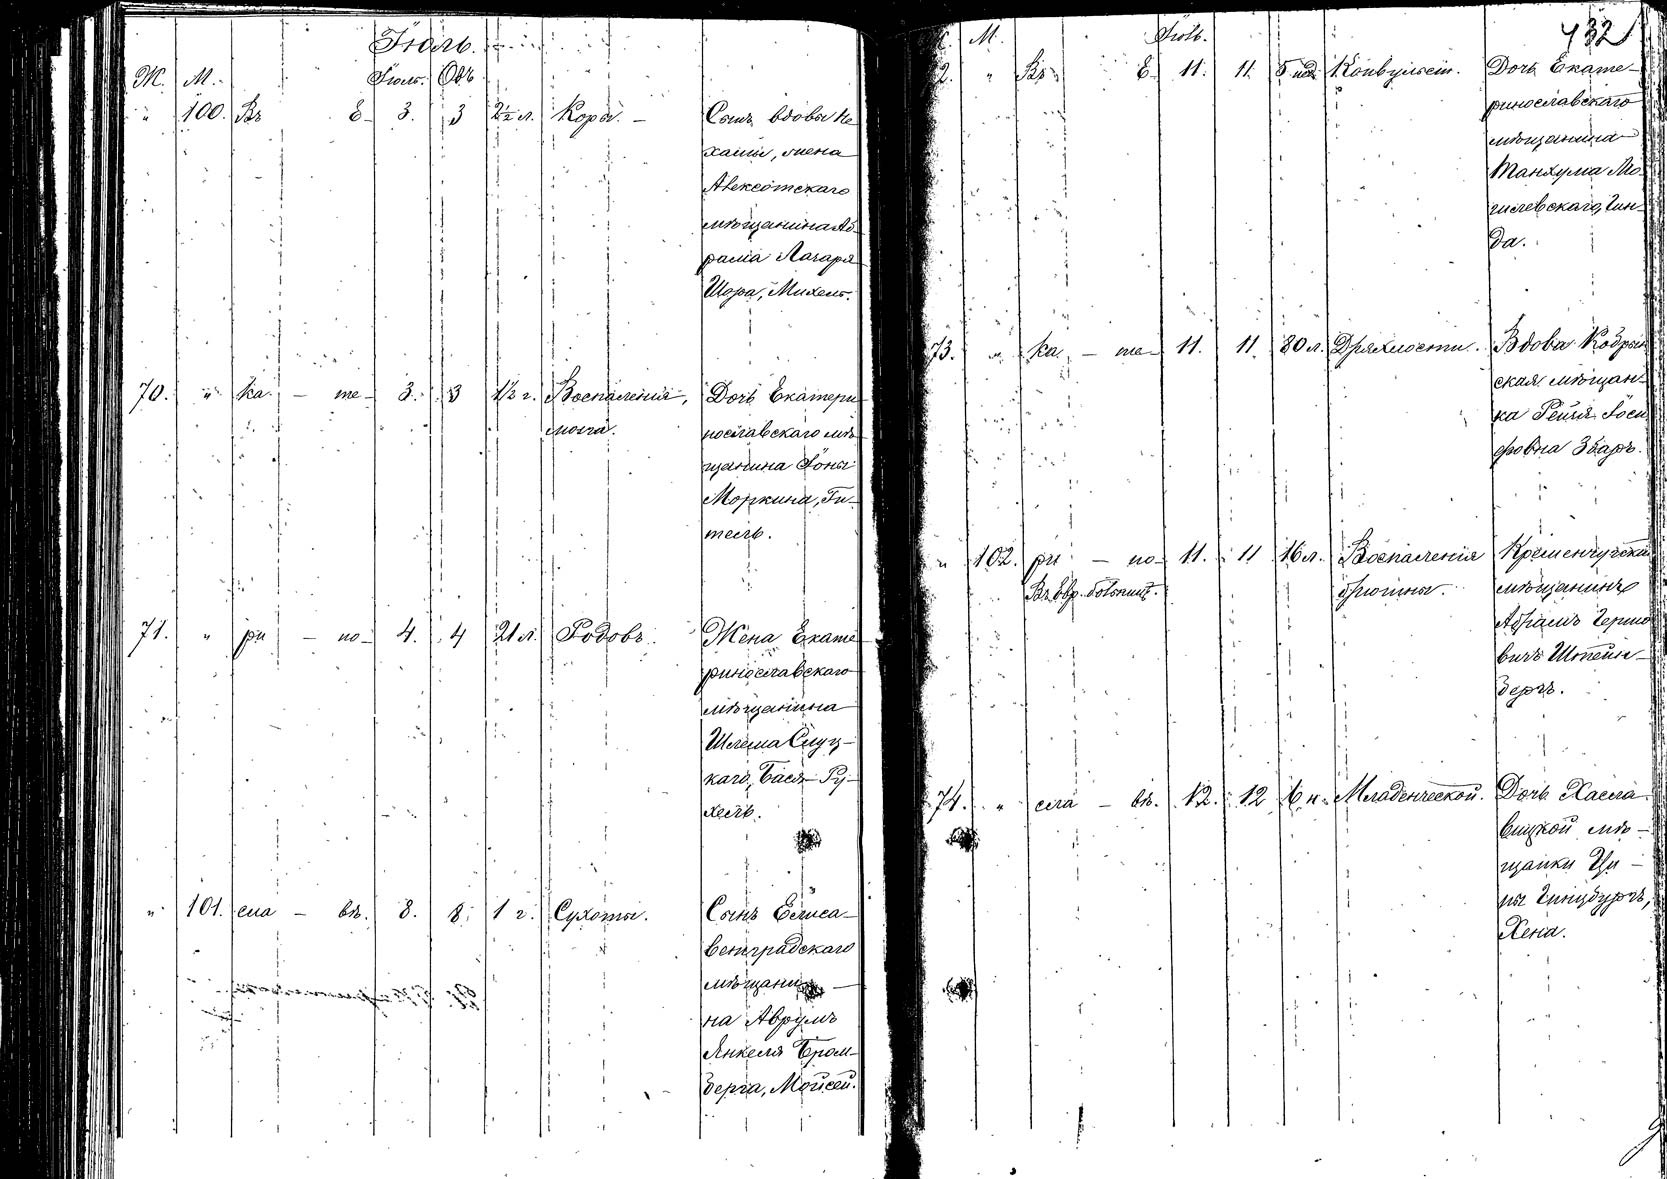 Іюль.
Ж. М. Іюль. Объ
" 100. Въ Е- 3. 3 2½ л. Кори. – Сынъ вдовы Не-
хамы, жена
Алексотскаго
мѣщанина Аб-
рама Лазаря
Шора, Михель.
70. " ка – те- 3. 3 1½ г. Воспаленія Дочь Екатери-
мозга. нославскаго мѣ-
щанина Іоны
Моркина, Ги-
тель.
71. " ри – но- 4. 4 21 л. Родовъ. Жена Екате-
ринославскаго
мѣщанина
Шлема Слуц-
каго, Бася-Ру-
хель.
" 101. сла – вѣ. 8. 8. 1 г. Сухоты. Сынъ Елиса-
ветградскаго
мѣщани-
на Аврумъ
Янкеля Бром-
берга, Мойсей.
432
М. Іюль.
2. " Въ Е- 11. 11. 5 нед. Конвульсіи. Дочь Екате-
ринославскаго
мѣщанина
Танхума Мо-
гилевскаго, Гин-
да.
73. " ка – те- 11. 11. 80 л. Дряхлости. Вдова Кобрин-
ская мѣщан-
ка Рейзя Іоси-
фовна Збаръ.
" 102. ри – но- 11. 11 16 л. Воспаленія Кременчугскій
Въ Евр. больниц. брюшины. мѣщанинъ
Абрамъ Гершо-
вичъ Штейн-
бергъ.
74. " сла – вѣ. 12. 12 6 н. Младенческой. Дочь Хасла-
вицкой мѣ-
щанки Ци-
пы Гинцбургъ,
Хена.